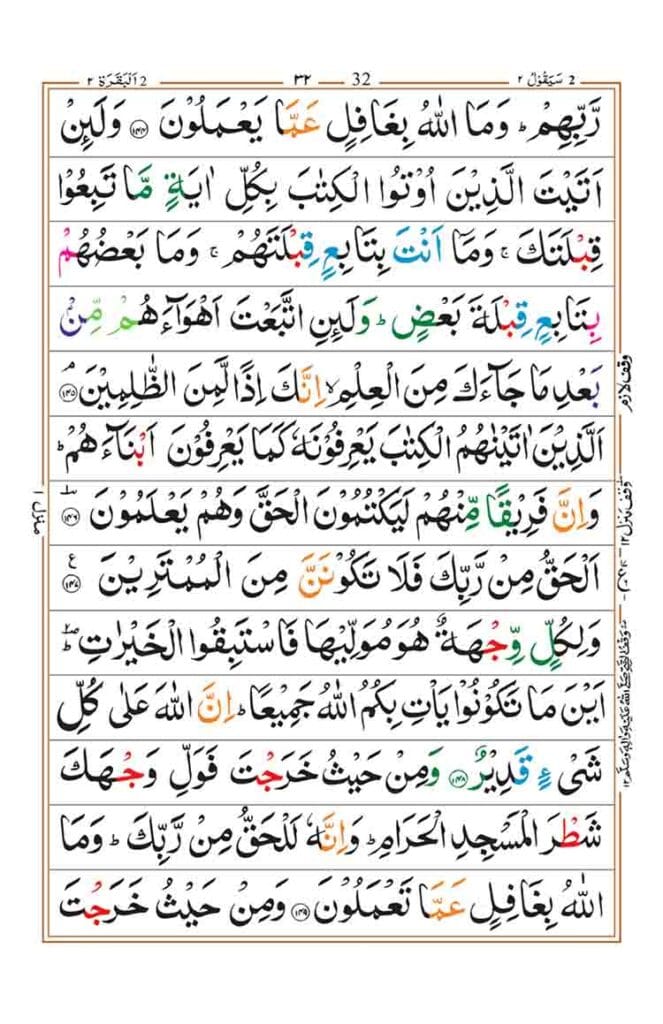 2 سَيَقُوۡلُ ۲ 32 ۳۲ 2 اَلْبَقَرَة ۲
رَّبِّهِمْ ؕ وَمَا اللّٰهُ بِغَافِلٍ عَمَّا يَعْمَلُوْنَ ﴿۱۴۴﴾ وَلَىِٕنْ
اَتَيْتَ الَّذِيْنَ اُوْتُوا الْكِتٰبَ بِكُلِّ اٰيَةٍ مَّا تَبِعُوْا
قِبْلَتَكَ ۚ وَمَاۤ اَنْتَ بِتَابِعٍ قِبْلَتَهُمْ ۚ وَمَا بَعْضُهُمْ
بِتَابِعٍ قِبْلَةَ بَعْضٍ ؕ وَلَىِٕنِ اتَّبَعْتَ اَهْوَآءَهُمْ مِّنْۢ
بَعْدِ مَا جَآءَكَ مِنَ الْعِلْمِ ۙ اِنَّكَ اِذًا لَّمِنَ الظّٰلِمِيْنَ ﴿۱۴۵﴾ ۘ
اَلَّذِيْنَ اٰتَيْنٰهُمُ الْكِتٰبَ يَعْرِفُوْنَهٗ كَمَا يَعْرِفُوْنَ اَبْنَآءَهُمْ ؕ
وَاِنَّ فَرِيْقًا مِّنْهُمْ لَيَكْتُمُوْنَ الْحَقَّ وَهُمْ يَعْلَمُوْنَ ﴿۱۴۶﴾
اَلْحَقُّ مِنْ رَّبِّكَ فَلَا تَكُوْنَنَّ مِنَ الْمُمْتَرِيْنَ ﴿۱۴۷﴾ ع
وَلِكُلٍّ وِّجْهَةٌ هُوَ مُوَلِّيْهَا فَاسْتَبِقُوا الْخَيْرٰتِ ؕ
اَيْنَ مَا تَكُوْنُوْا يَاْتِ بِكُمُ اللّٰهُ جَمِيْعًا ؕ اِنَّ اللّٰهَ عَلٰى كُلِّ
شَىْءٍ قَدِيْرٌ ﴿۱۴۸﴾ وَمِنْ حَيْثُ خَرَجْتَ فَوَلِّ وَجْهَكَ
شَطْرَ الْمَسْجِدِ الْحَرَامِ ؕ وَاِنَّهٗ لَلْحَقُّ مِنْ رَّبِّكَ ؕ وَمَا
اللّٰهُ بِغَافِلٍ عَمَّا تَعْمَلُوْنَ ﴿۱۴۹﴾ وَمِنْ حَيْثُ خَرَجْتَ
وقف لازم
وقف منزل ۱۲
منزل ۱